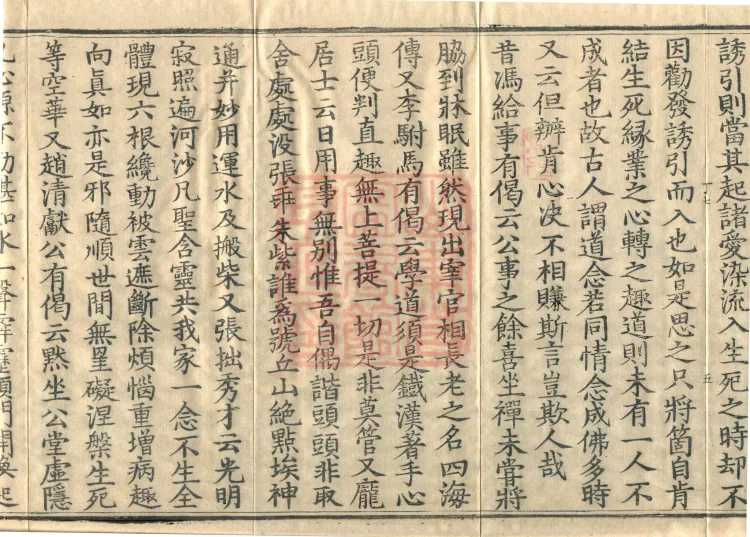 誘引則當其起諸愛染流入生死之時却不
因勸發誘引而入也如是思之只將箇自肯
結生死緣業之心轉之趣道則未有一人不
成者也故古人謂道念若同情念成佛多時
又云但辦肯心決不相賺斯言豈欺人哉
昔馮給事有偈云公事之餘喜坐禪未甞將
脇到牀眠雖然現出宰官相長老之名四海
傳又李駙馬有偈云學道須是鐵漢著手心
頭便判直趣無上菩提一切是非莫管又龐
居士云日用事無別惟吾自偶諧頭頭非取
舍處處没張乖朱紫誰爲號丘山絶點埃神
通并妙用運水及搬柴又張拙秀才云光明
寂照遍河沙凡聖含靈共我家一念不生全
體現六根纔動被雲遮斷除煩惱重增病趣
向眞如亦是邪隨順世間無罣礙涅槃生死
等空華又趙清獻公有偈云黙坐公堂虛隱
几心源不動湛如水一聲霹靂頂門開喚起